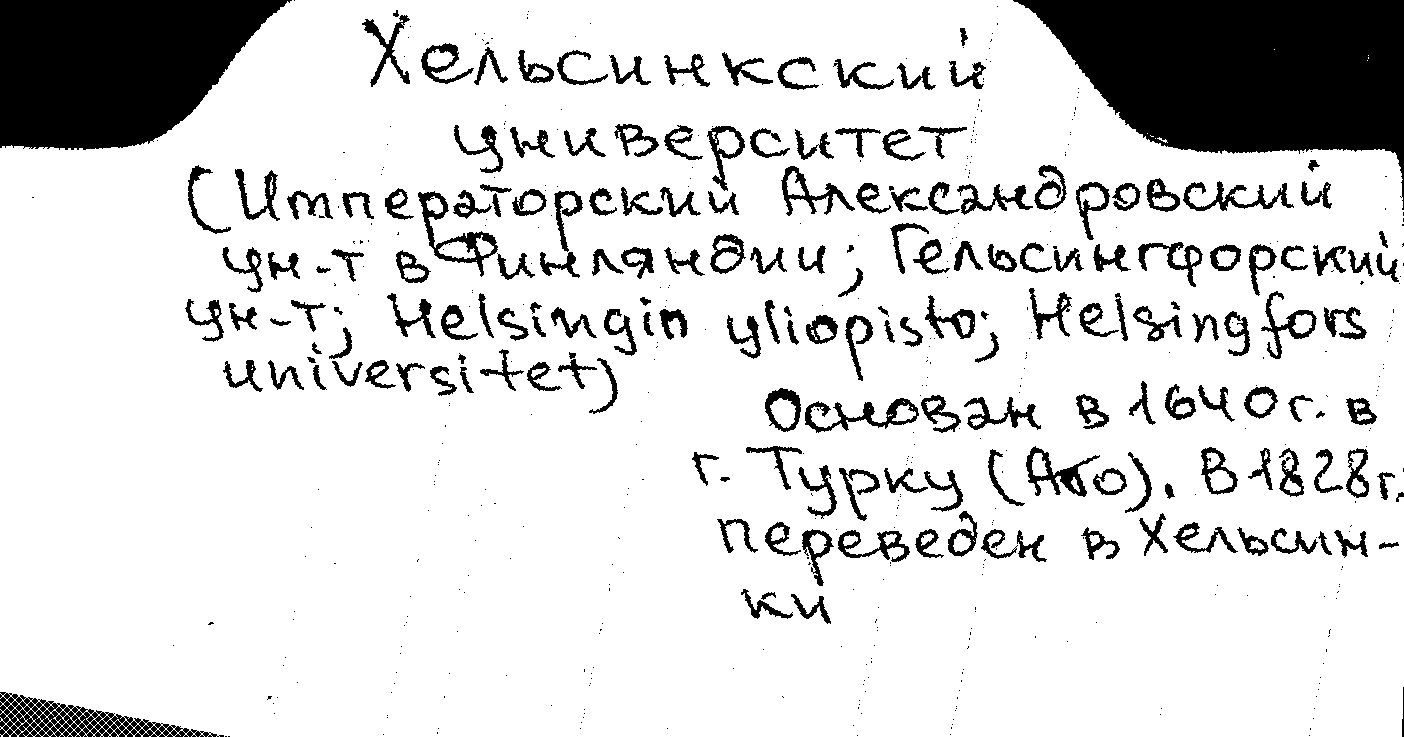 Хельсинкский
университет
(Императорский Александровский
ун-т в Финляндии; Гельсингфорский
ун-т; Helsingin yliopisto; Helsingfors
universitet)
Основан в 1640 г. в
г. Турку (Або). В 1828 г.
переведен в Хельсин-
ки